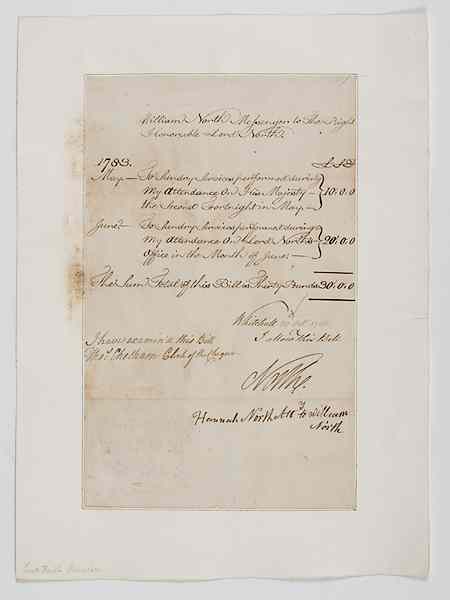 William North Messenger to The Right
Honorable Lord North.
1783. £ S D
May — To Sundry Services performed during
My Attendance On His Majesty —
the Second Fortnight in May — 10:0:0
June — To Sundry Services performed during
My Attendance On Lord North's
Office in the Month of June — 20:0:0
The Sum Total of this Bill is Thirty Pounds 30:0:0
Whitehall
I have examin'd this Bill I allow this Bill
Thos. Cheetham Clerk of the Cheque
North.
Hannah North Att.y to William
North